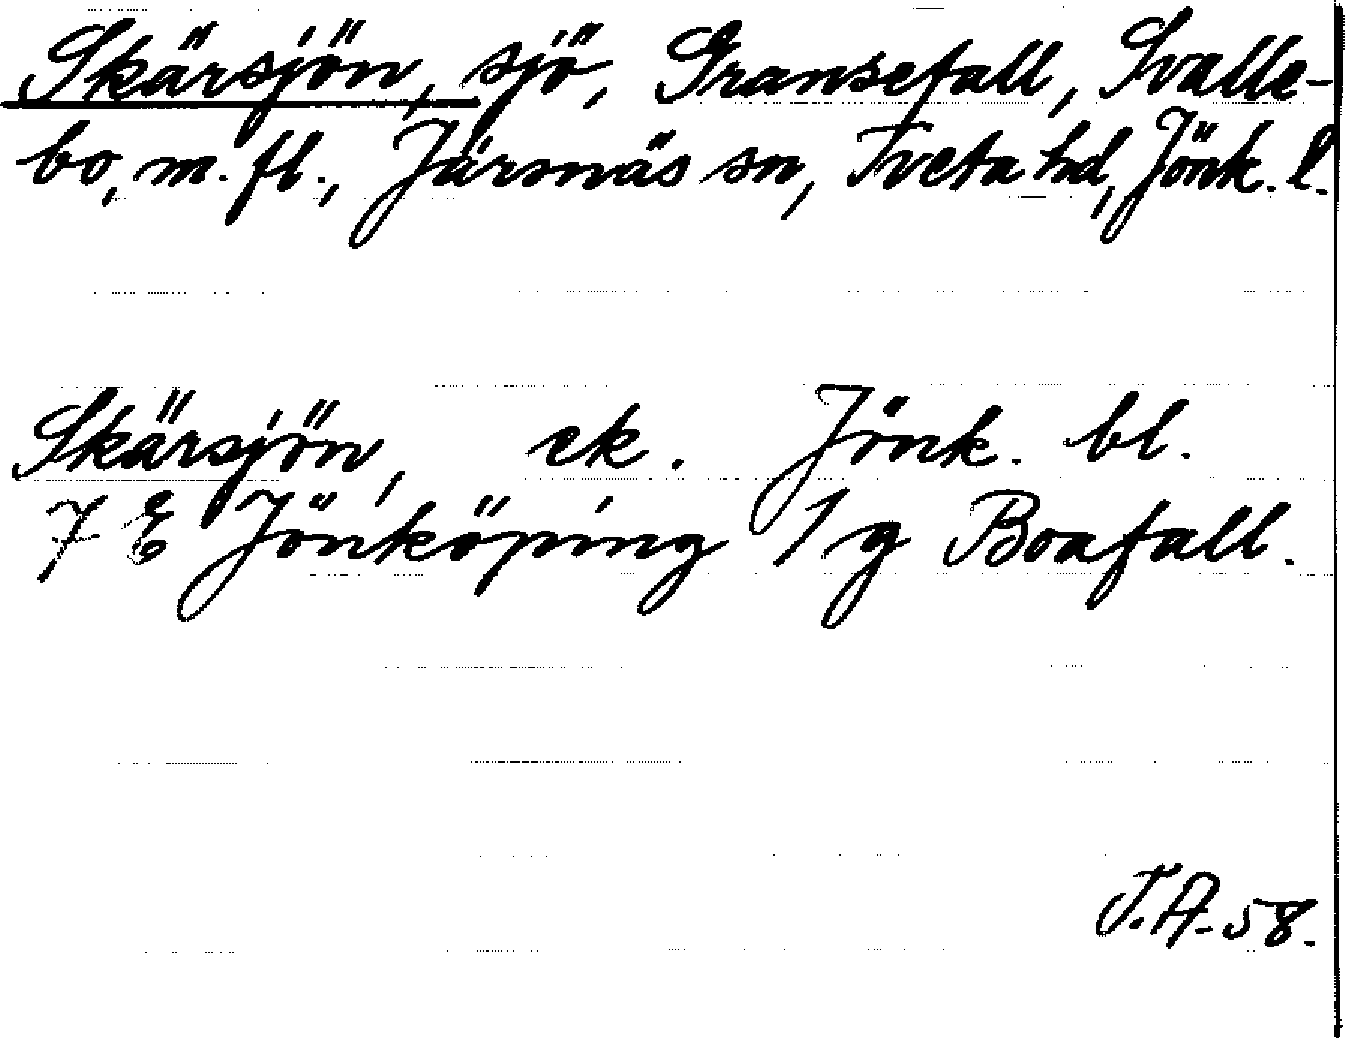 Skärsjön, sjö, Gransefall, Svalle-
bo, m.fl., Järsnäs sn, Tveta hd, Jönk. l.
Skärsjön, ek. Jönk. bl.
7 E Jönköping 1 g Boafall.
T.A.-58.